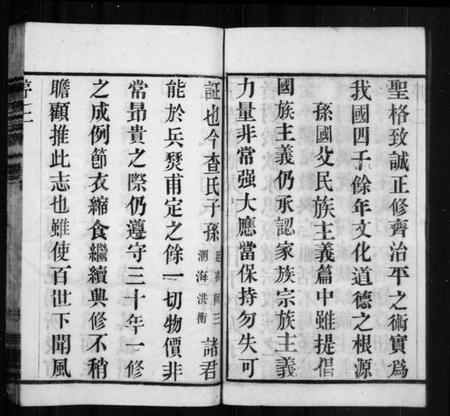 聖格致誠正修齊治平之術實爲
我國四千餘年文化道德之根源
孫國父民族主義篇中雖提倡
國族主義仍承認家族宗族主義
力量非常强大應當保持勿失可
証也今查氏子孫
潮海洪衛
諸君
能於兵燹甫定之餘一切物價非
常昻貴之際仍遵守三十年一修
之成例節衣縮食繼續興修不稍
瞻顧推此志也雖使百世下聞風
序二